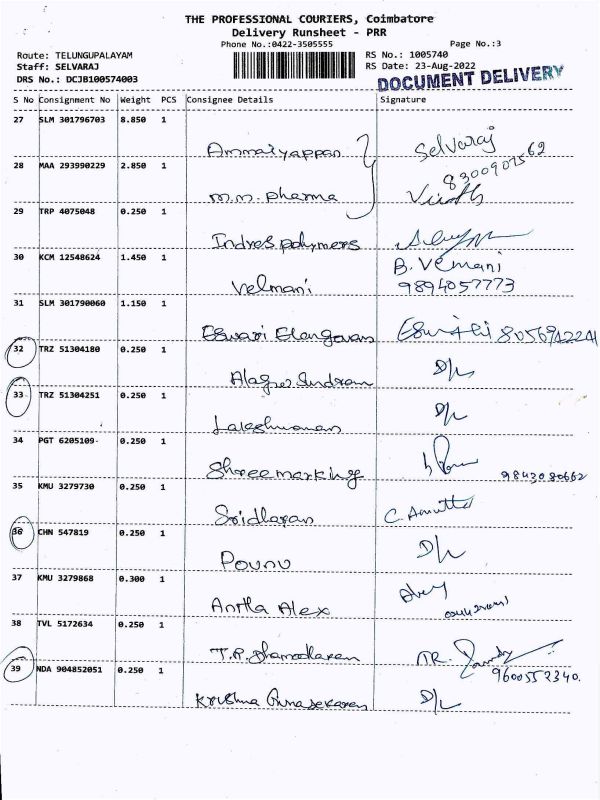 THE PROFESSIONAL COURIERS, Coimbatore
Delivery Runsheet - PRR
Phone No.:0422-3505555 Page No.:3
Route: TELUNGUPALAYAM RS No.: 1005740
Staff: SELVARAJ RS Date: 23-Aug-2022
DRS No.: DCJB100574003 DOCUMENT DELIVERY
S No Consignment No Weight PCS Consignee Details Signature
27 SLM 301796703 8.850 1
Ammaiyappan Selvaraj
28 MAA 293990229 2.850 1
m.m. pharma
29 TRP 4075048 0.250 1
Indres polymers
30 KCM 12548624 1.450 1 B. Vemani
Velmani 9894057773
31 SLM 301790060 1.150 1
Eswari Elangovan
32 TRZ 51304180 0.250 1
Alagar Sundram D/L
33 TRZ 51304251 0.250 1
Lakshmanan D/L
34 PGT 6205109 0.250 1
Shree marking 9843080662
35 KMU 3279730 0.250 1
Sridharan C. Amutha
36 CHN 547819 0.250 1
Pounu D/L
37 KMU 3279868 0.300 1
Antla Alex
38 TVL 5172634 0.250 1
T.R. Dhamodharan TR.
39 NDA 904852051 0.250 1 9600552340.
Krishna Gunasekaran D/L